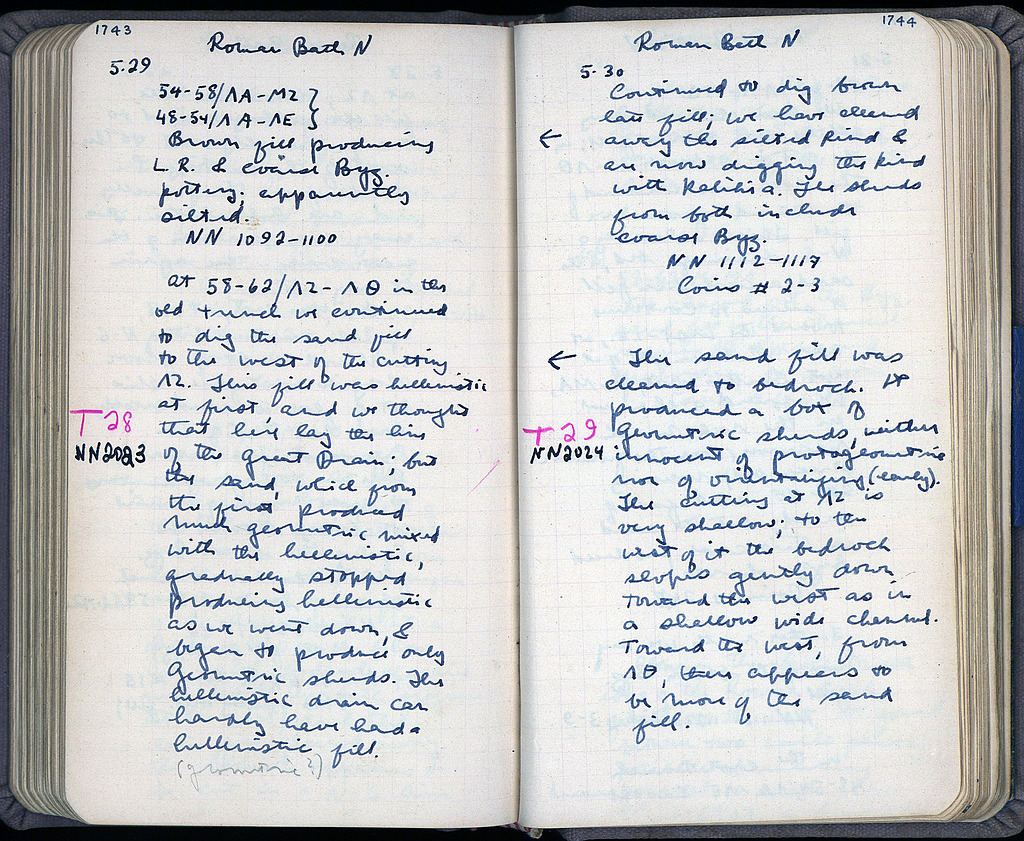 1743
Roman Bath N
5.29
54-58/ΛA-MZ }
48-54/ΛA-ΛE }
Brown fill producing
L.R. & coarse Byz.
pottery; apparently
silted.
NN 1092-1100
at 58-62/ΛZ-ΛΘ in the
old trench we continued
to dig the sand fill
to the west of the cutting
ΛZ. This fill was hellenistic
at first, and we thought
T 28
that here lay the line
NN2023
of the great Drain; but
the sand, which from
the first produced
much geometric mixed
with the hellenistic,
gradually stopped
producing hellenistic
as we went down, &
began to produce only
Geometric sherds. The
hellenistic drain can
hardly have had a
hellenistic fill.
(geometric?)
1744
Roman Bath N
5.30
Continued to dig brown
late fill; we have cleared
← away the silted kind &
are now digging the kind
with Kalikia. The sherds
from both include
coarse Byz.
NN 1112-1117
Coins # 2-3
← The sand fill was
cleared to bedrock. It
produced a box of
T 29
Geometric sherds, neither
NN2024
innocent of protogeometric
nor of orientalizing (early).
The cutting at ΛZ is
very shallow; to the
west of it the bedrock
slopes gently down
toward the west as in
a shallow wide channel.
Toward the west, from
ΛΘ, there appears to
be more of the sand
fill.